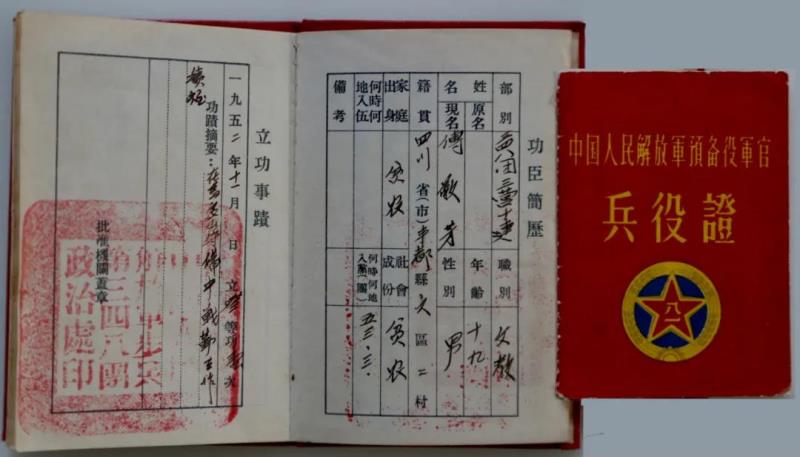 功臣簡歷
部別 職別 文教
姓名 原名 年齡 十九
現名 傅敬芳 性別 男
籍貫 四川省(市)丰都縣 區二村
家庭出身 貧农 社會成份 貧农
何時何地入伍 何時何地入黨(團) 五三.三.
備考
立功事蹟
一九五二年十一月 日 立 等功 次
功蹟摘要：在 守備中戰勤工作
積極
批准機關蓋章
解 軍步兵
第三四八團
政治處印
中国人民解放軍預备役軍官
兵役證
八一